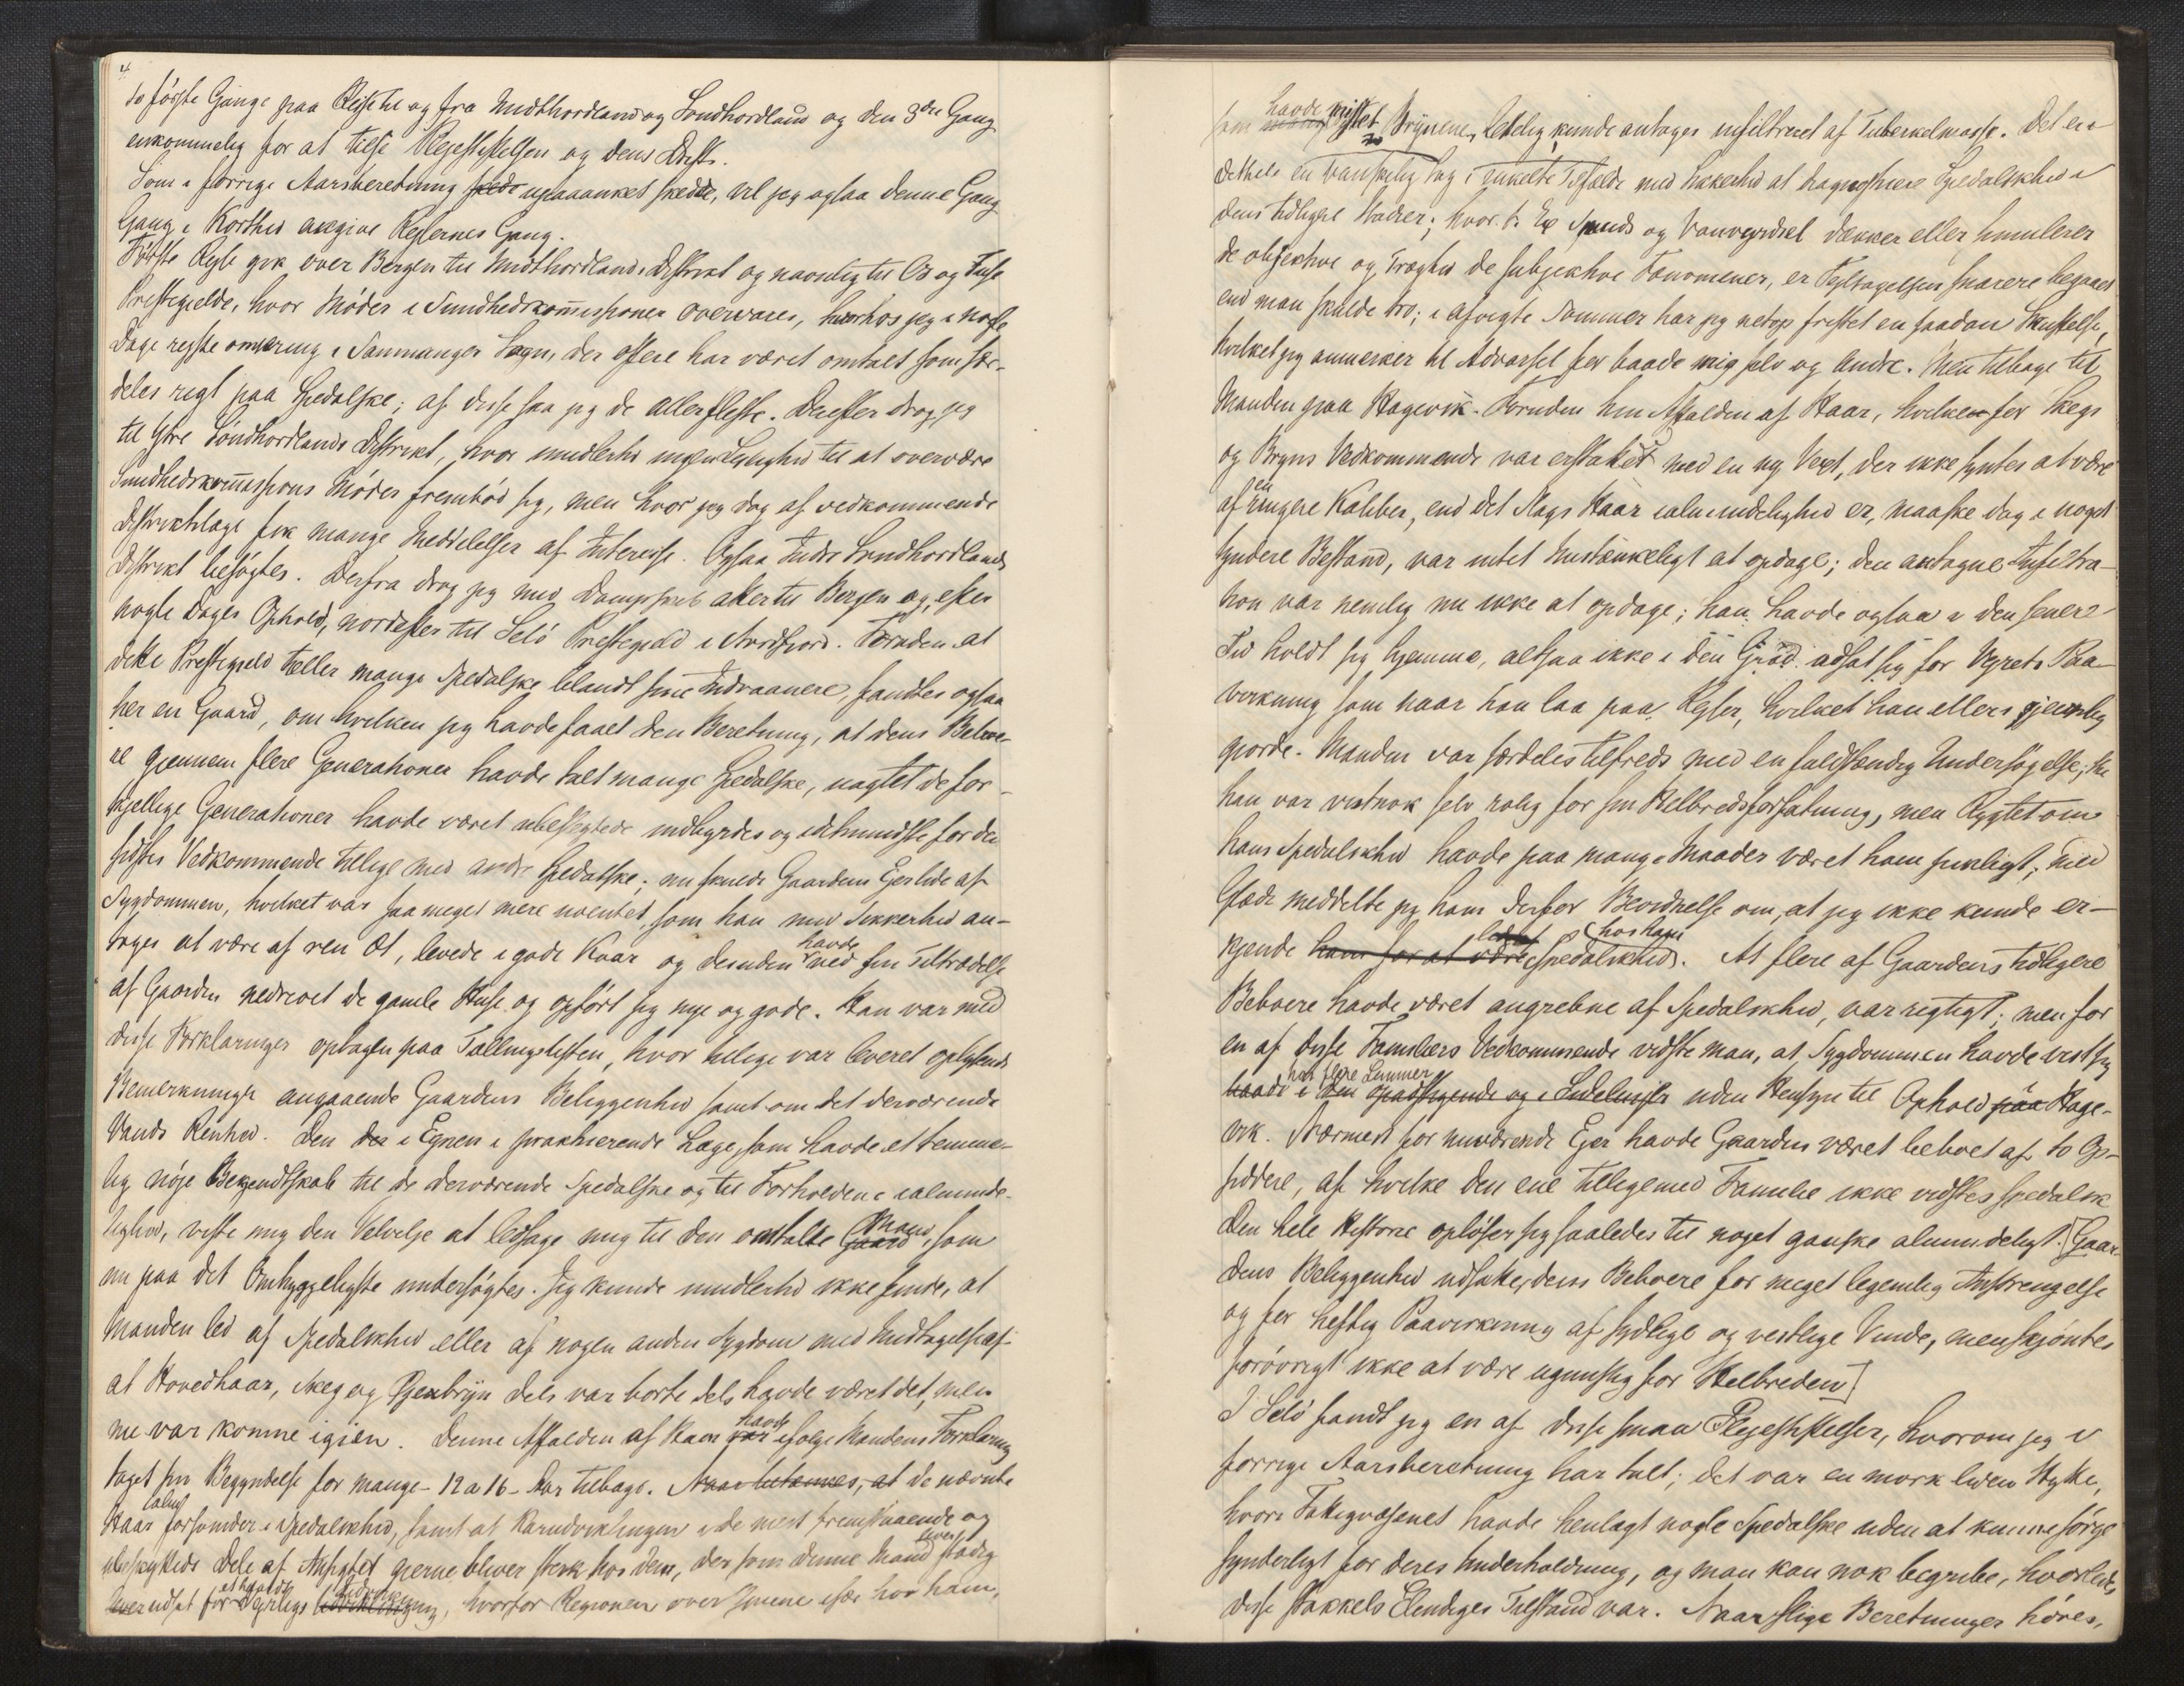 4
to første Gange paa Rejse til og fra Midthordland og Søndhordland og den 3die Gang
enkommelig for at tilse Plejestiftelsen og dens Drift.
Som i forrige Aarsberetning skede upaaanket skedde, vil jeg ogsaa denne Gang
Gang i Korthed angive Rejsernes Gang.
Første Rejse gik over Bergen til Midthordlands Distrikt og navnlig til Os og Fuse
Præstegjelde, hvor Møder i Sundhedskommissionen overvares, hvorhos jeg i nogle
Dage rejste omkring i Sammanger Sogn, der oftere har været omtalt som sær-
deles rigt paa Spedalske; af disse saa jeg de allerfleste. Derefter drog jeg
til Ytre Søndhordlands Distrikt, hvor imidlertid ingen Leilighed til at overvære
Sundhedskommissions Møder frembød sig, men hvor jeg dog af vedkommende
Distriktslæge fik mange Meddelelser af Interesse. Ogsaa Indre Søndhordlands
Distrikt besøgtes. Derfra drog jeg med Dampskib atter til Bergen og, efter
nogle Dages Ophold, nordefter til Selø Præstegjeld i Nordfjord. Foruden at
dette Præstegjeld tæller mange Spedalske blandt sine Indvaanere, fandtes ogsaa
her en Gaard, om hvilken jeg havde faaet den Beretning, at dens Beboe-
re gjennem flere Generationer havde talt mange Spedalske, uagtet de for-
skjellige Generationer havde været ubeslegtede indbyrdes og idetmindste for den
sidstes Vedkommende tillige med andre Spedalske; nu skulde Gaardens Ejer lide af
Sygdommen, hvilket var saa meget mere uventet, som han med Sikkerhed an-
toges at være af ren Æt, levede i gode Kaar og desuden havde ved sin Tiltrædelse
af Gaarden nedrevet de gamle Huse og opført sig nye og gode. Han var med
disse Forklaringer optagen paa Tællingslisten, hvor tillige var leveret oplysende
Bemerkninger angaaende Gaardens Beliggenhed samt om det derværende
Vands Renhed. Den der i Egnen i praktiserende Læge, som havde et temme-
lig nøje Bekjendtskab til de derværende Spedalske og til Forholdene i alminde-
lighed, viste mig den Velvilje at ledsage mig til den omtalte Gaard Mand, som
nu paa det Omhyggeligste undersøgtes. Jeg kunde imidlertid ikke finde, at
Manden led af Spedalskhed eller af nogen anden Sygdom med Undtagelse af
at Hovedhaar, Skeg og Øjenbryn dels var borte dels havde været det, men
nu var komne igjen. Denne Affalden af Haar var havde ifølge Mandens Forklaring
taget sin Begyndelse for mange - 12 a 16 - Aar tilbage. Naar betænkes, at de nævnte
Haar forsvinder i Spedalskhed, samt at Rarudviklingen i de mest fremstaaende og
ubeskyttede Dele af Ansigtet gjerne bliver sterk hos dem, der som denne Mand stadig
udsat for Vejrligs, hvorfor Regionen over Øjnene især hos ham,
som havde mistet Brynene, letelig kunde antages infiltreret af Tuberkelmasse. Det er i
dethele en vanskelig Sag i enkelte Tilfælde med Sikkerhed at diagnostisere Spedalskhed i
dens tidligere Stadier; hvor t. Ex. Smuds og Vanvyrdsel dækker eller simulerer
de objektive og Træghed de subjektive Fænomener, er Fejltagelsen snarere begaaet
end man skulde tro; i afvigte Sommer har jeg netop fristet en saadan Skuffelse,
hvilket jeg anmerker til Advarsel for baade mig selv og Andre. Men tilbage til
Manden paa Hagevik. Foruden hin Affalden af Haar, hvilken for Skegs
og Bryns Vedkommende var erstattet med en ny Vext, der ikke syntes at være
af en ringere Kaliber, end det Slags Haar i almindelighed er, maaske dog i noget
tyndere Bestand, var intet Mistænkeligt at opdage; den antagne Infiltra-
tion var nemlig nu ikke at opdage; han havde ogsaa i den senere
Tid holdt sig hjemme, altsaa ikke i den Grad udsat sig for Vejrets Paa-
virkning som naar han laa paa Rejser, hvilket han ellers jevnlig
gjorde. Manden var særdeles tilfreds med en fuldstændig Undersøgelse; thi
han var vistnok selv rolig for sin Helbredsforfatning, men Rygtet om
hans Spedalskhed havde paa mange Maader været ham pinligt; med
Glæde meddelte jeg ham derfor Bevidnelse om, at jeg ikke kunde er-
kjende ham for at være Spedalskhed hos ham. At flere af Gaardens tidligere
Beboere havde været angrebne af Spedalskhed, var rigtigt; men for
en af disse Familiers Vedkommende vidste man, at Sygdommen havde vist sig
hos flere Lemmer baade i den opadstigende og i Sidelinjer uden Hensyn til Ophold paa Hage-
vik. Nærmest før nuværende Ejer havde Gaarden været beboet af to Op-
siddere, af hvilke den ene tilligemed Familie ikke vidstes spedalsk
Den hele Historie opløser sig saaledes til noget ganske almindeligt. [Gaar-
dens Beliggenhed udsætter dens Beboere for meget legemlig Anstrengelse
og for heftig Paavirkning af sydlige og vestlige Vinde, men skjøntes
forøvrigt ikke at være ugunstig for Helbreden]
I Selø fandt jeg en af disse smaa Plejestiftelser, hvorom jeg i
forrige Aarsberetning har talt; det var en mørk liden Hytte,
hvori Fattigvæsenet havde henlagt nogle Spedalske uden at kunne sørge
synderligt for deres Underholdning, og man kan nok begribe, hvorledes
disse stakkels Elendiges Tilstand var. Naar slige Beretninger høres,